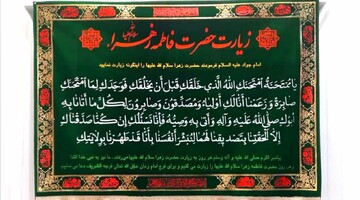 زیارت حضرت فاطمه زهرا سلام الله علیها
امام جواد علیه السلام فرمودند حضرت زهرا سلام الله علیها را اینگونه زیارت نمایید
يَا مُمْتَحَنَةُ امْتَحَنَكِ اللهُ الَّذِي خَلَقَكِ قَبْلَ أَنْ يَخْلُقَكِ فَوَجَدَكِ لِمَا امْتَحَنَكِ
صَابِرَةً وَزَعَمْنَا أَنَّا لَكِ أَوْلِيَاءُ وَمُصَدِّقُونَ وَصَابِرُونَ لِكُلِّ مَا أَتَانَا بِهِ
أَبُوكِ صَلَّى اللهُ عَلَيْهِ وَآلِهِ وَأَتَى بِهِ وَصِيُّهُ فَإِنَّا نَسْأَلُكِ إِنْ كُنَّا صَدَّقْنَاكِ
إِلَّا أَلْحَقْتِنَا بِتَصْدِيقِنَا لَهُمَا لِنُبَشِّرَ أَنْفُسَنَا بِأَنَّا قَدْ طَهُرْنَا بِوِلَايَتِكِ